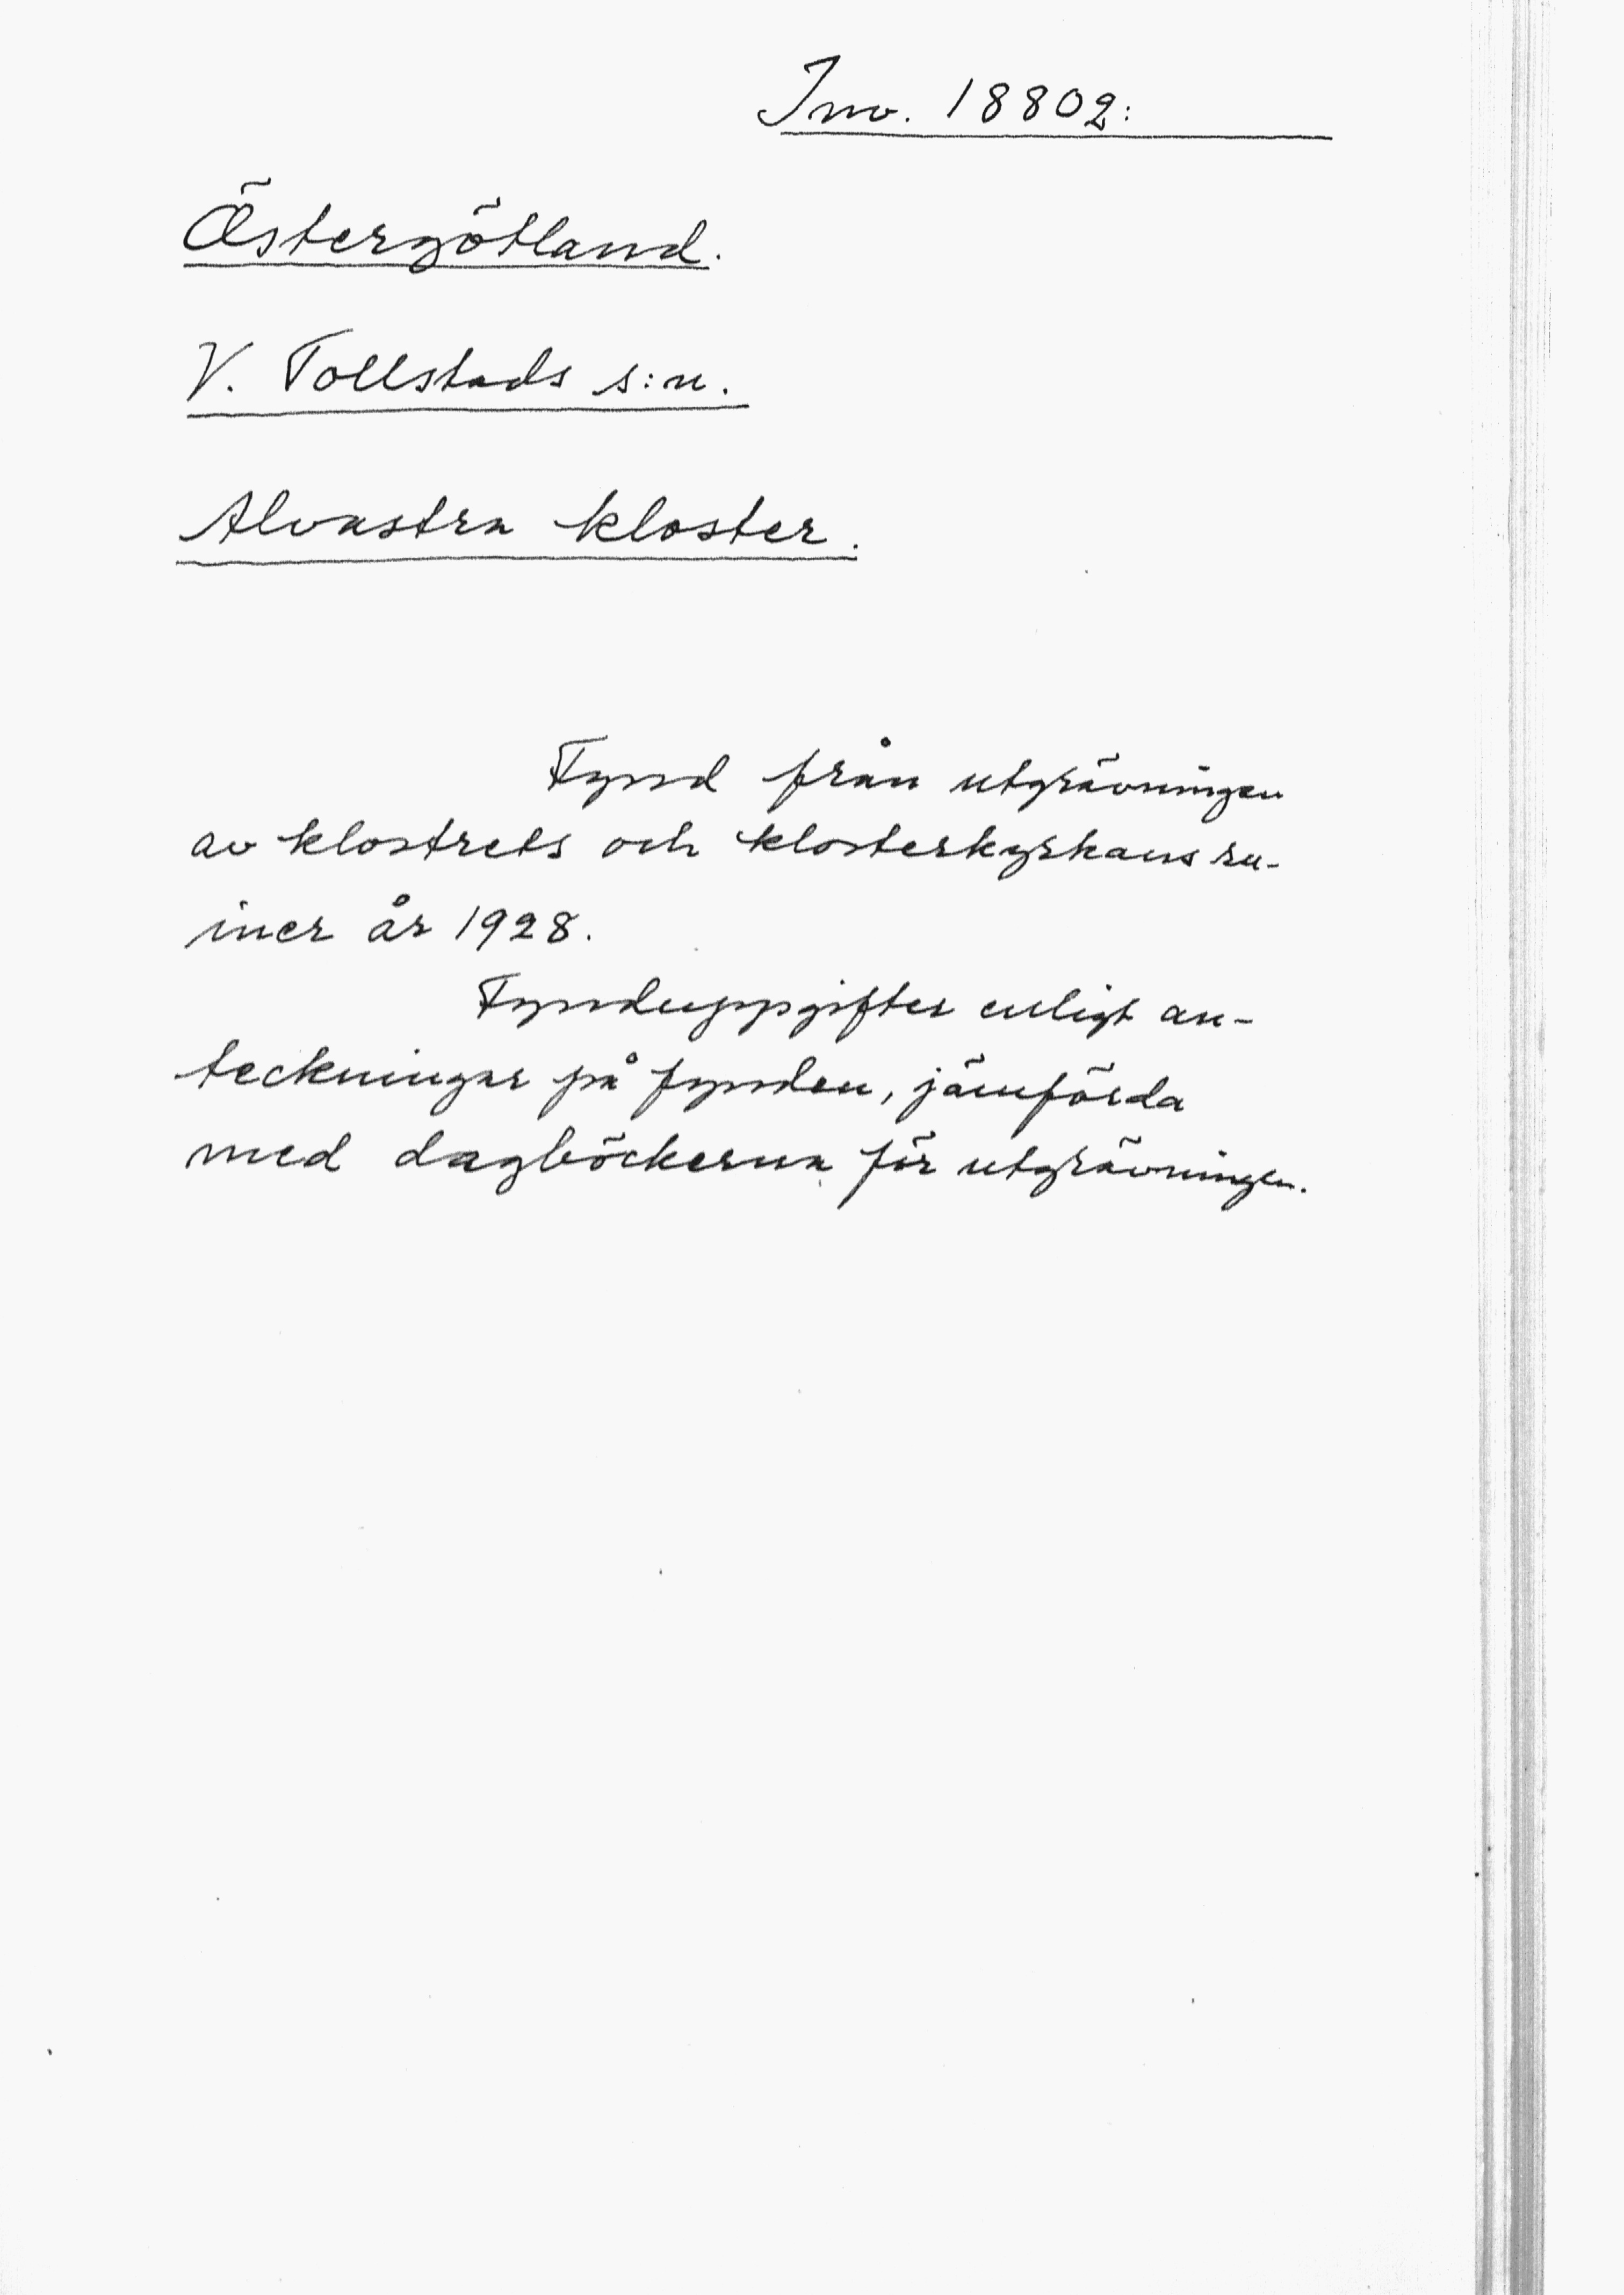 Inv. 18802:
Östergötland.
V. Tollstads s:n.
Alvastra kloster.
Fynd från utgrävningen
av klostrets och klosterkyrkans ru-
iner år 1928.
Fynduppgifter enligt an-
teckningar på fynden, jämförda
med dagböckerna för utgrävningen.